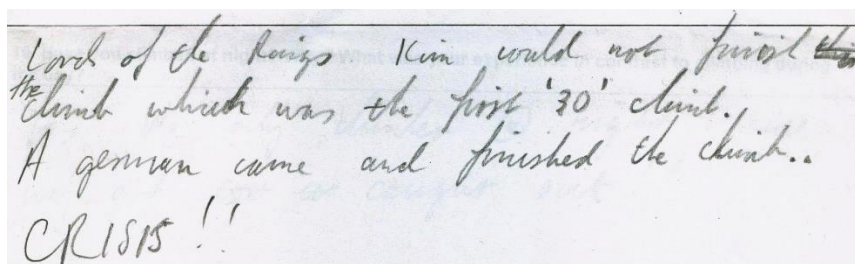 Lord of the Rings Kim could not finish
the climb which was the first '30' climb.
A german came and finished the climb..
CRISIS!!